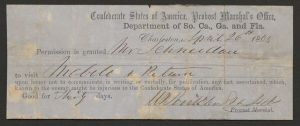 Confederate States of America, Provost Marshal's Office,
Department of So. Ca., Ga. and Fla.
Charleston, April 26th 186
Permission is granted Mr.
to visit Mobile & Return
upon honor not to communicate, in writing, or verbally, for publication, any fact ascertained, which,
known to the enemy, might be injurious to the Confederate States of America.
Good for Thirty days.
Provost Marshal.